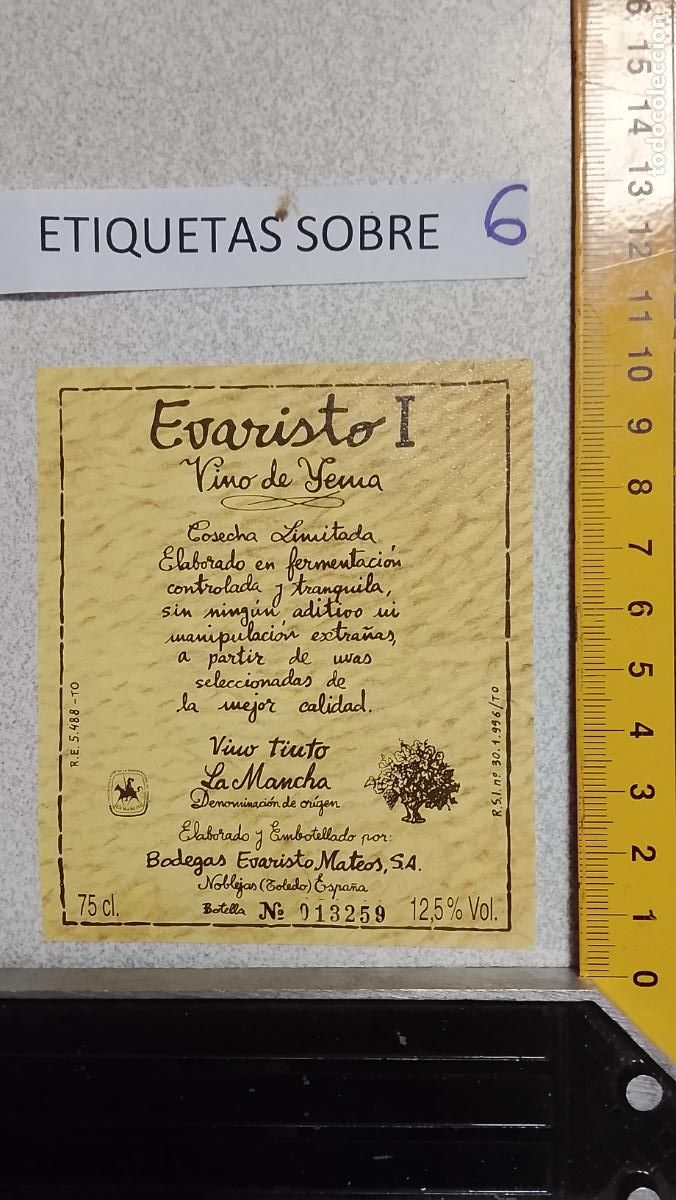 ETIQUETAS SOBRE 6
Evaristo I
Vino de Yema
Cosecha Limitada
Elaborado en fermentación
controlada y tranquila,
sin ningún aditivo ni
manipulación extrañas,
a partir de uvas
seleccionadas de
la mejor calidad.
R.E. 5.488-TO
R.S.I. nº 30.1.996/TO
Vino tinto
La Mancha
Denominación de origen
Elaborado y Embotellado por:
Bodegas Evaristo Mateos, S.A.
Noblejas (Toledo) España
75 cl. Botella Nº 013259 12,5% Vol.
15
14
13
12
11
10
9
8
7
6
5
4
3
2
1
0
todocoleccion